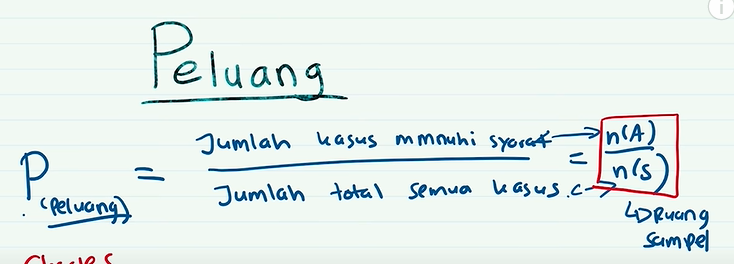 Peluang
P (Peluang) = Jumlah kasus mmnuhi syarat = n(A)
Jumlah total semua kasus. n(s)
↳ Ruang
sampel